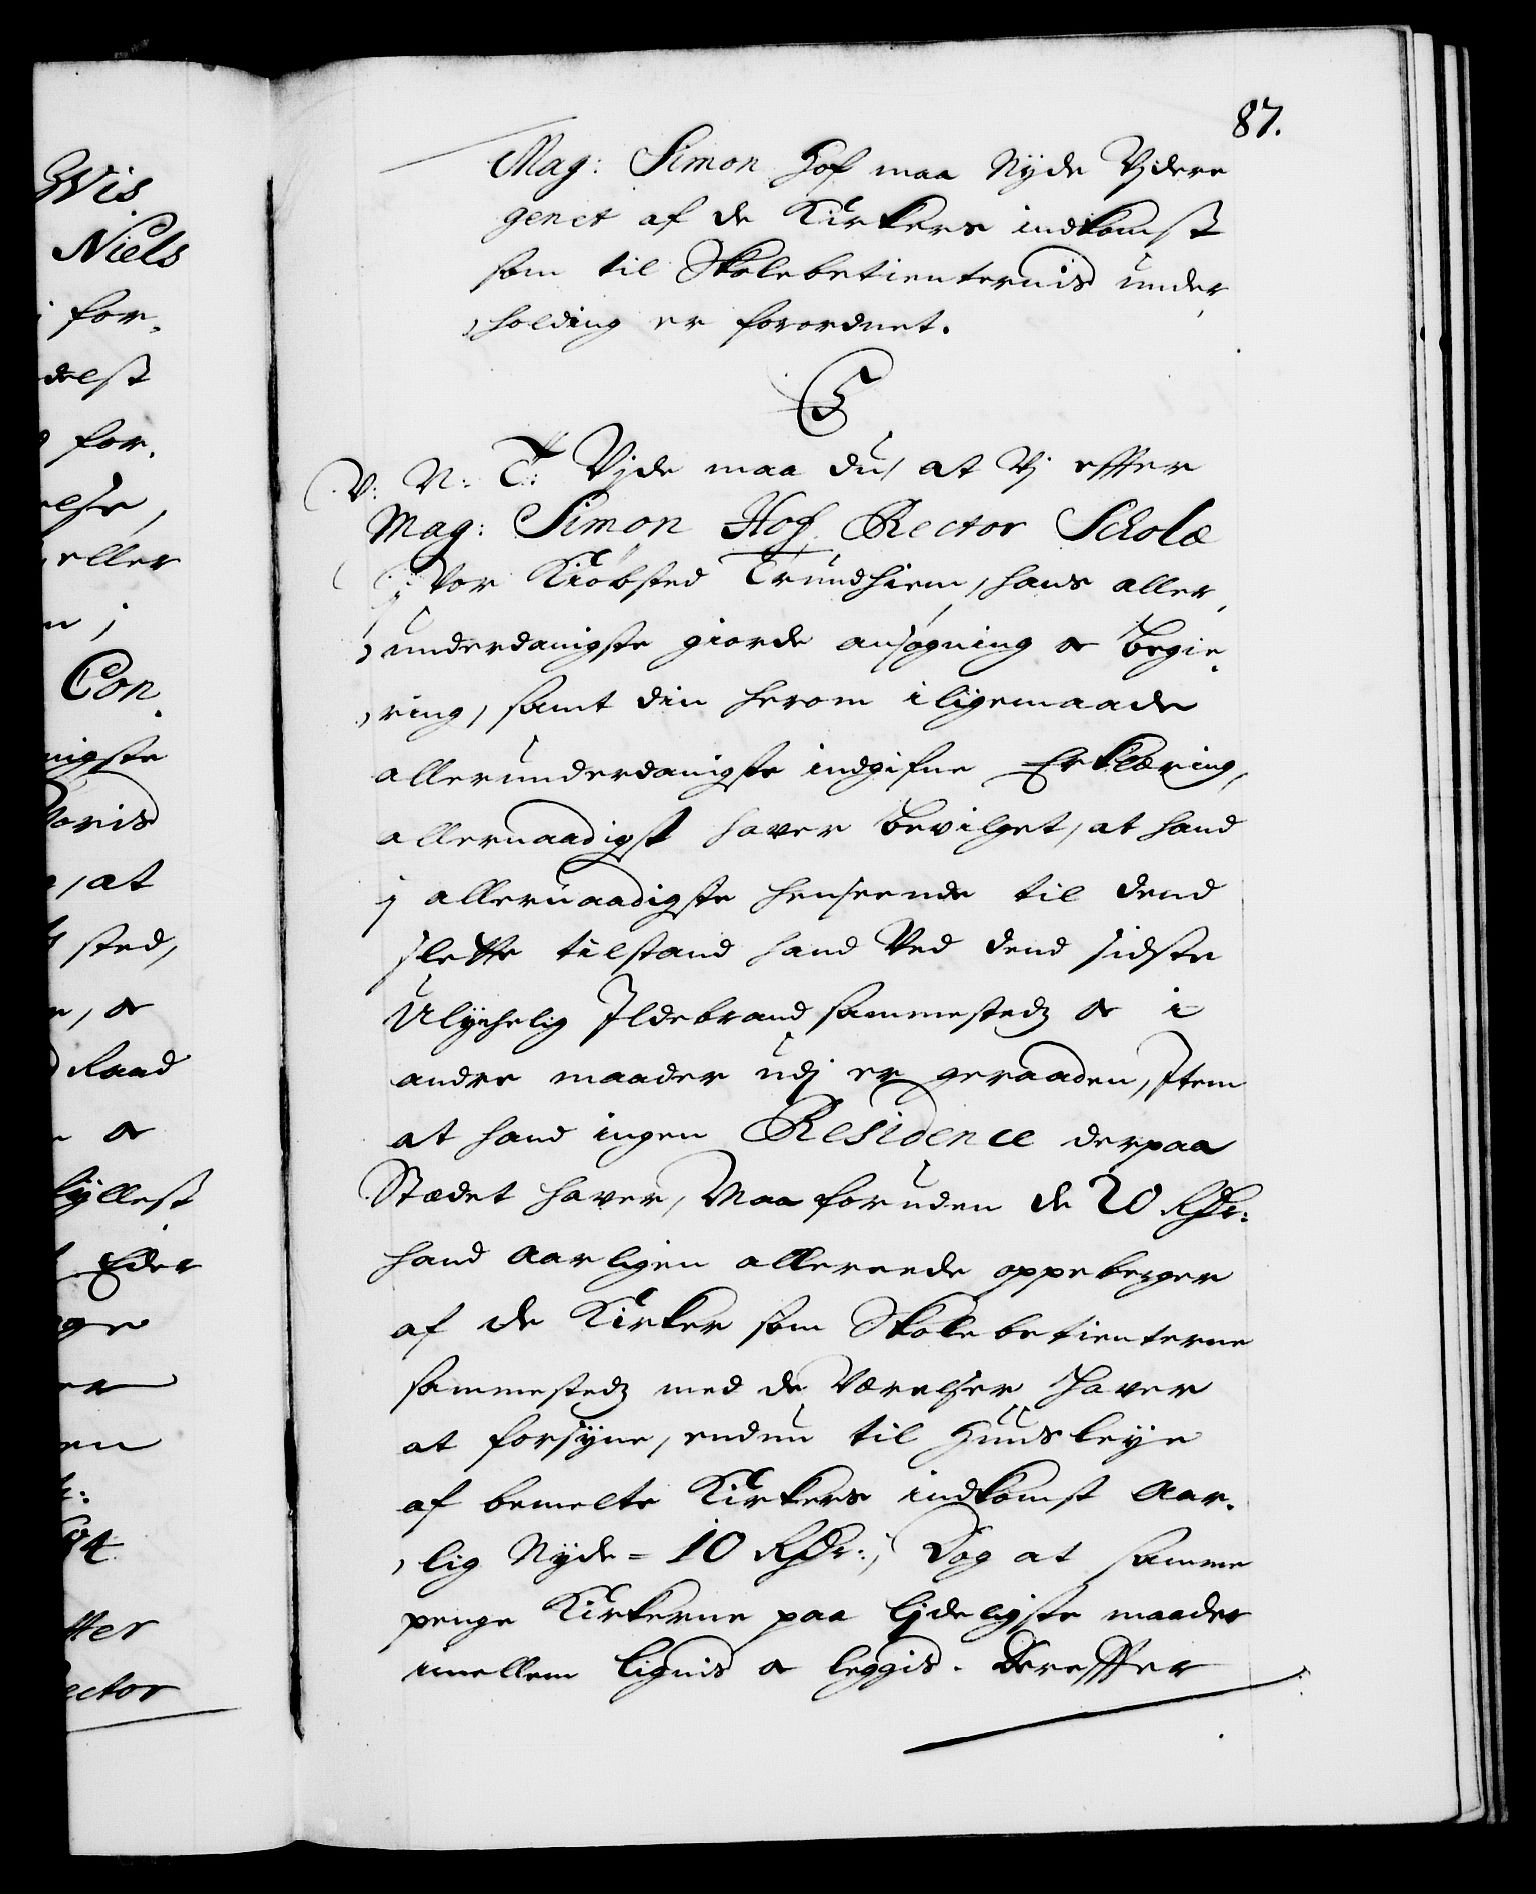 87.
Mag: Simon Hof maa Nyde Vjdere
genet af de Kirkers indkomst
som til Skolebetienternis under,
,holding er forordnet.
C 5
V: N: T: Vjde maa du, at Vj effter
Mag: Simon Hof, Rector Scholæ
j Vor Kiöbsted Trundhiem, hans aller,
,underdanigste giorde ansøgning oc Begie,
,ring, samt din herom iligemaade
allerunderdanigste indgifne Erklæring,
allernaadigst haver Bevilget, at hand
j allernaadigste henseende til dend
slette tilstand hand Ved dend sidste
Ulychelig Ildebrand sammestedz oc i
andre maader udj er geraaden, Item
at hand ingen Residence derpaa
Stædet haver, Maa foruden de 20 Rdr:
hand Aarligen allereede oppeberger
af de Kirker som Skolebetienterne
sammestedz med de Værelser haver
at forsyne, endnu til Huusleye
af bemelte Kirkers indkomst Aar,
,lig Nyde = 10 Rdr:, Dog at samme
penge Kirkerne paa ljdeligste maader
imellem lignis oc leggis. Dereffter
Wis
Niels
for,
delst
for,
else,
eller
n j
Con,
nigste
Voris
, at
sted,
, oc
Raad
oc
fyllest
Eder
ge
er
en
ter
ector